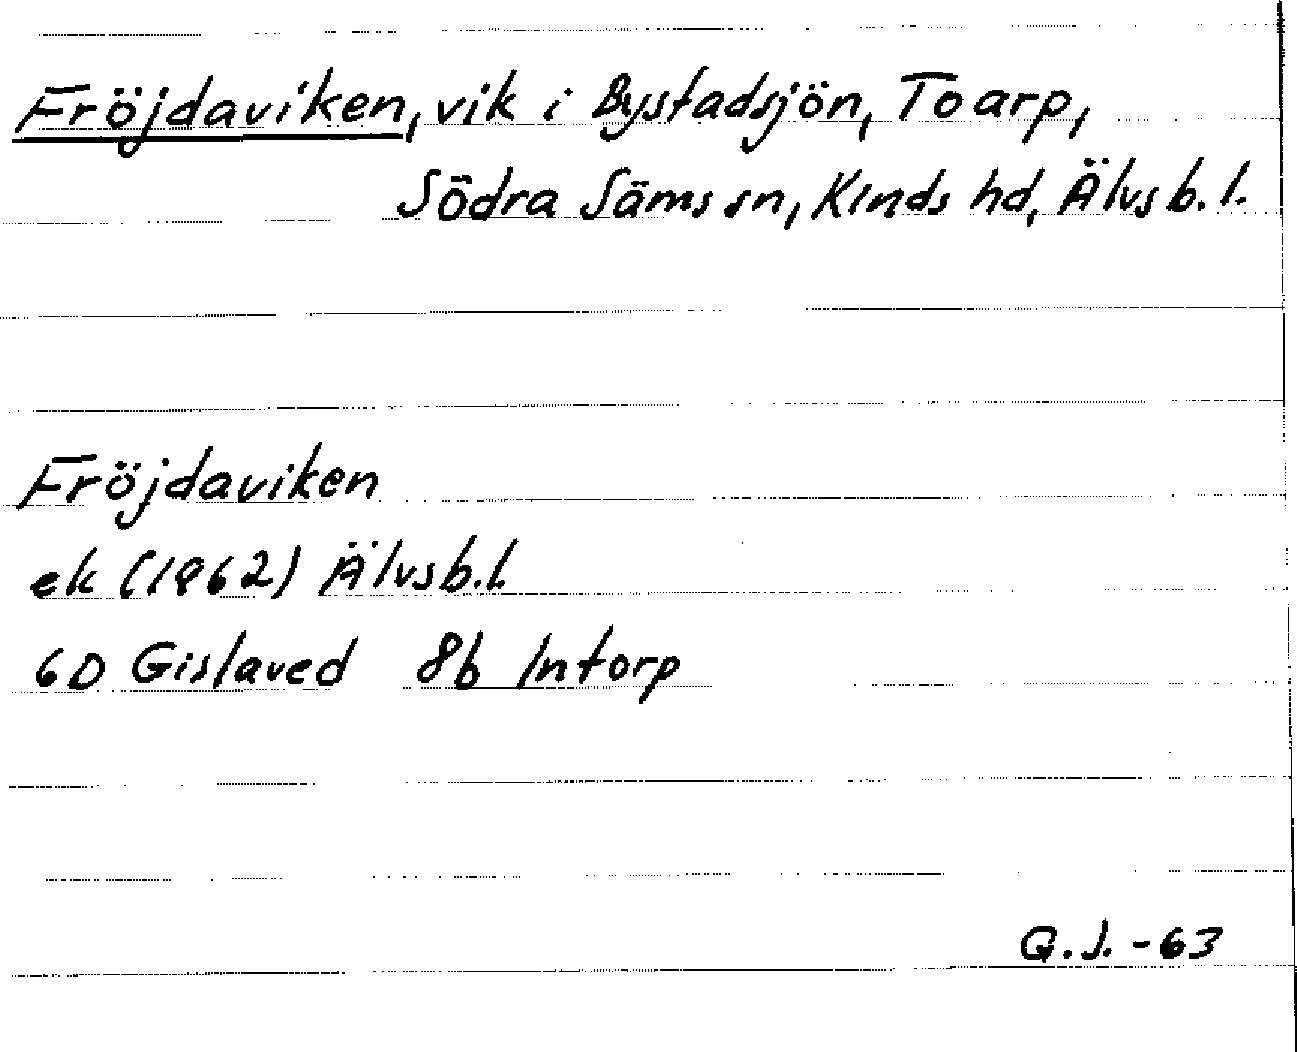 Fröjdaviken, vik i Bystadsjön, Toarp,
Södra Säms sn, Kinds hd, Älvsb. l.
Fröjdaviken
ek (1962) Älvsb.l.
6D Gislaved 8b Intorp
G.J. -63